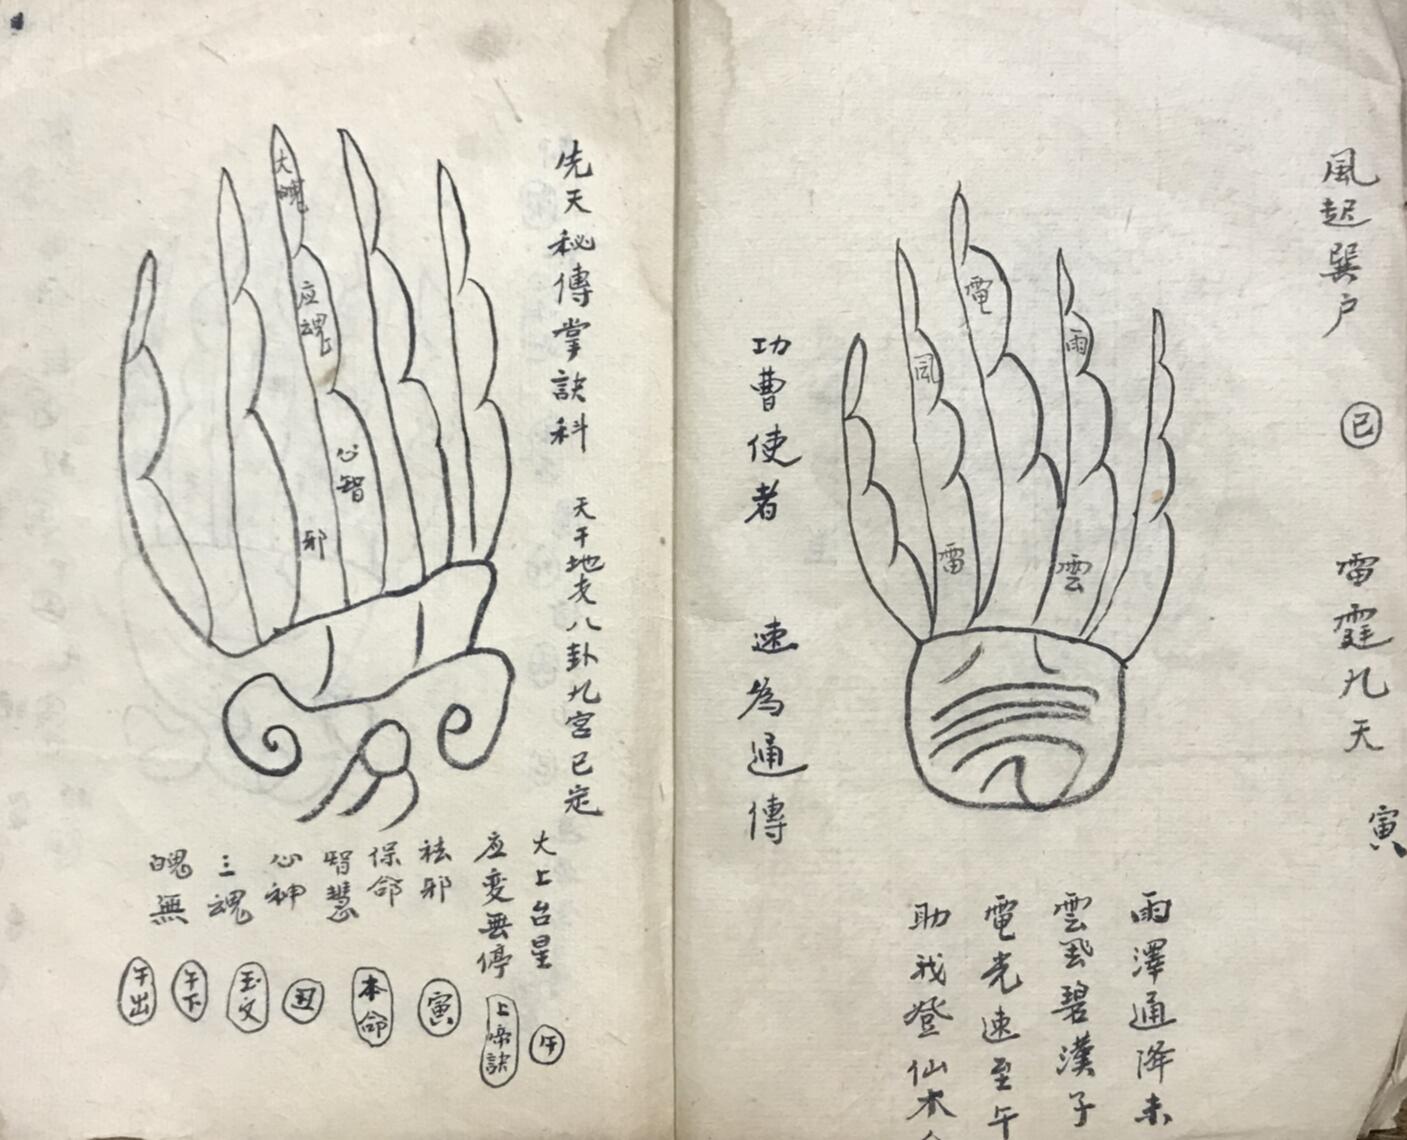 風起巽户
巳
雷霆九天
寅
雨澤通降未
雲風碧漢子
電光速至午
助我登仙本
電
風
雨
雷
雲
功曹使者
速為通傳
先天秘傳掌訣科
天干地支八卦九宮已定
大魄
应魂
心智
邪
大上台星
午
应变無停
上帝訣
祛邪
寅
保命
本命
智慧
丑
心神
玉文
三魂
午下
魄無
午出